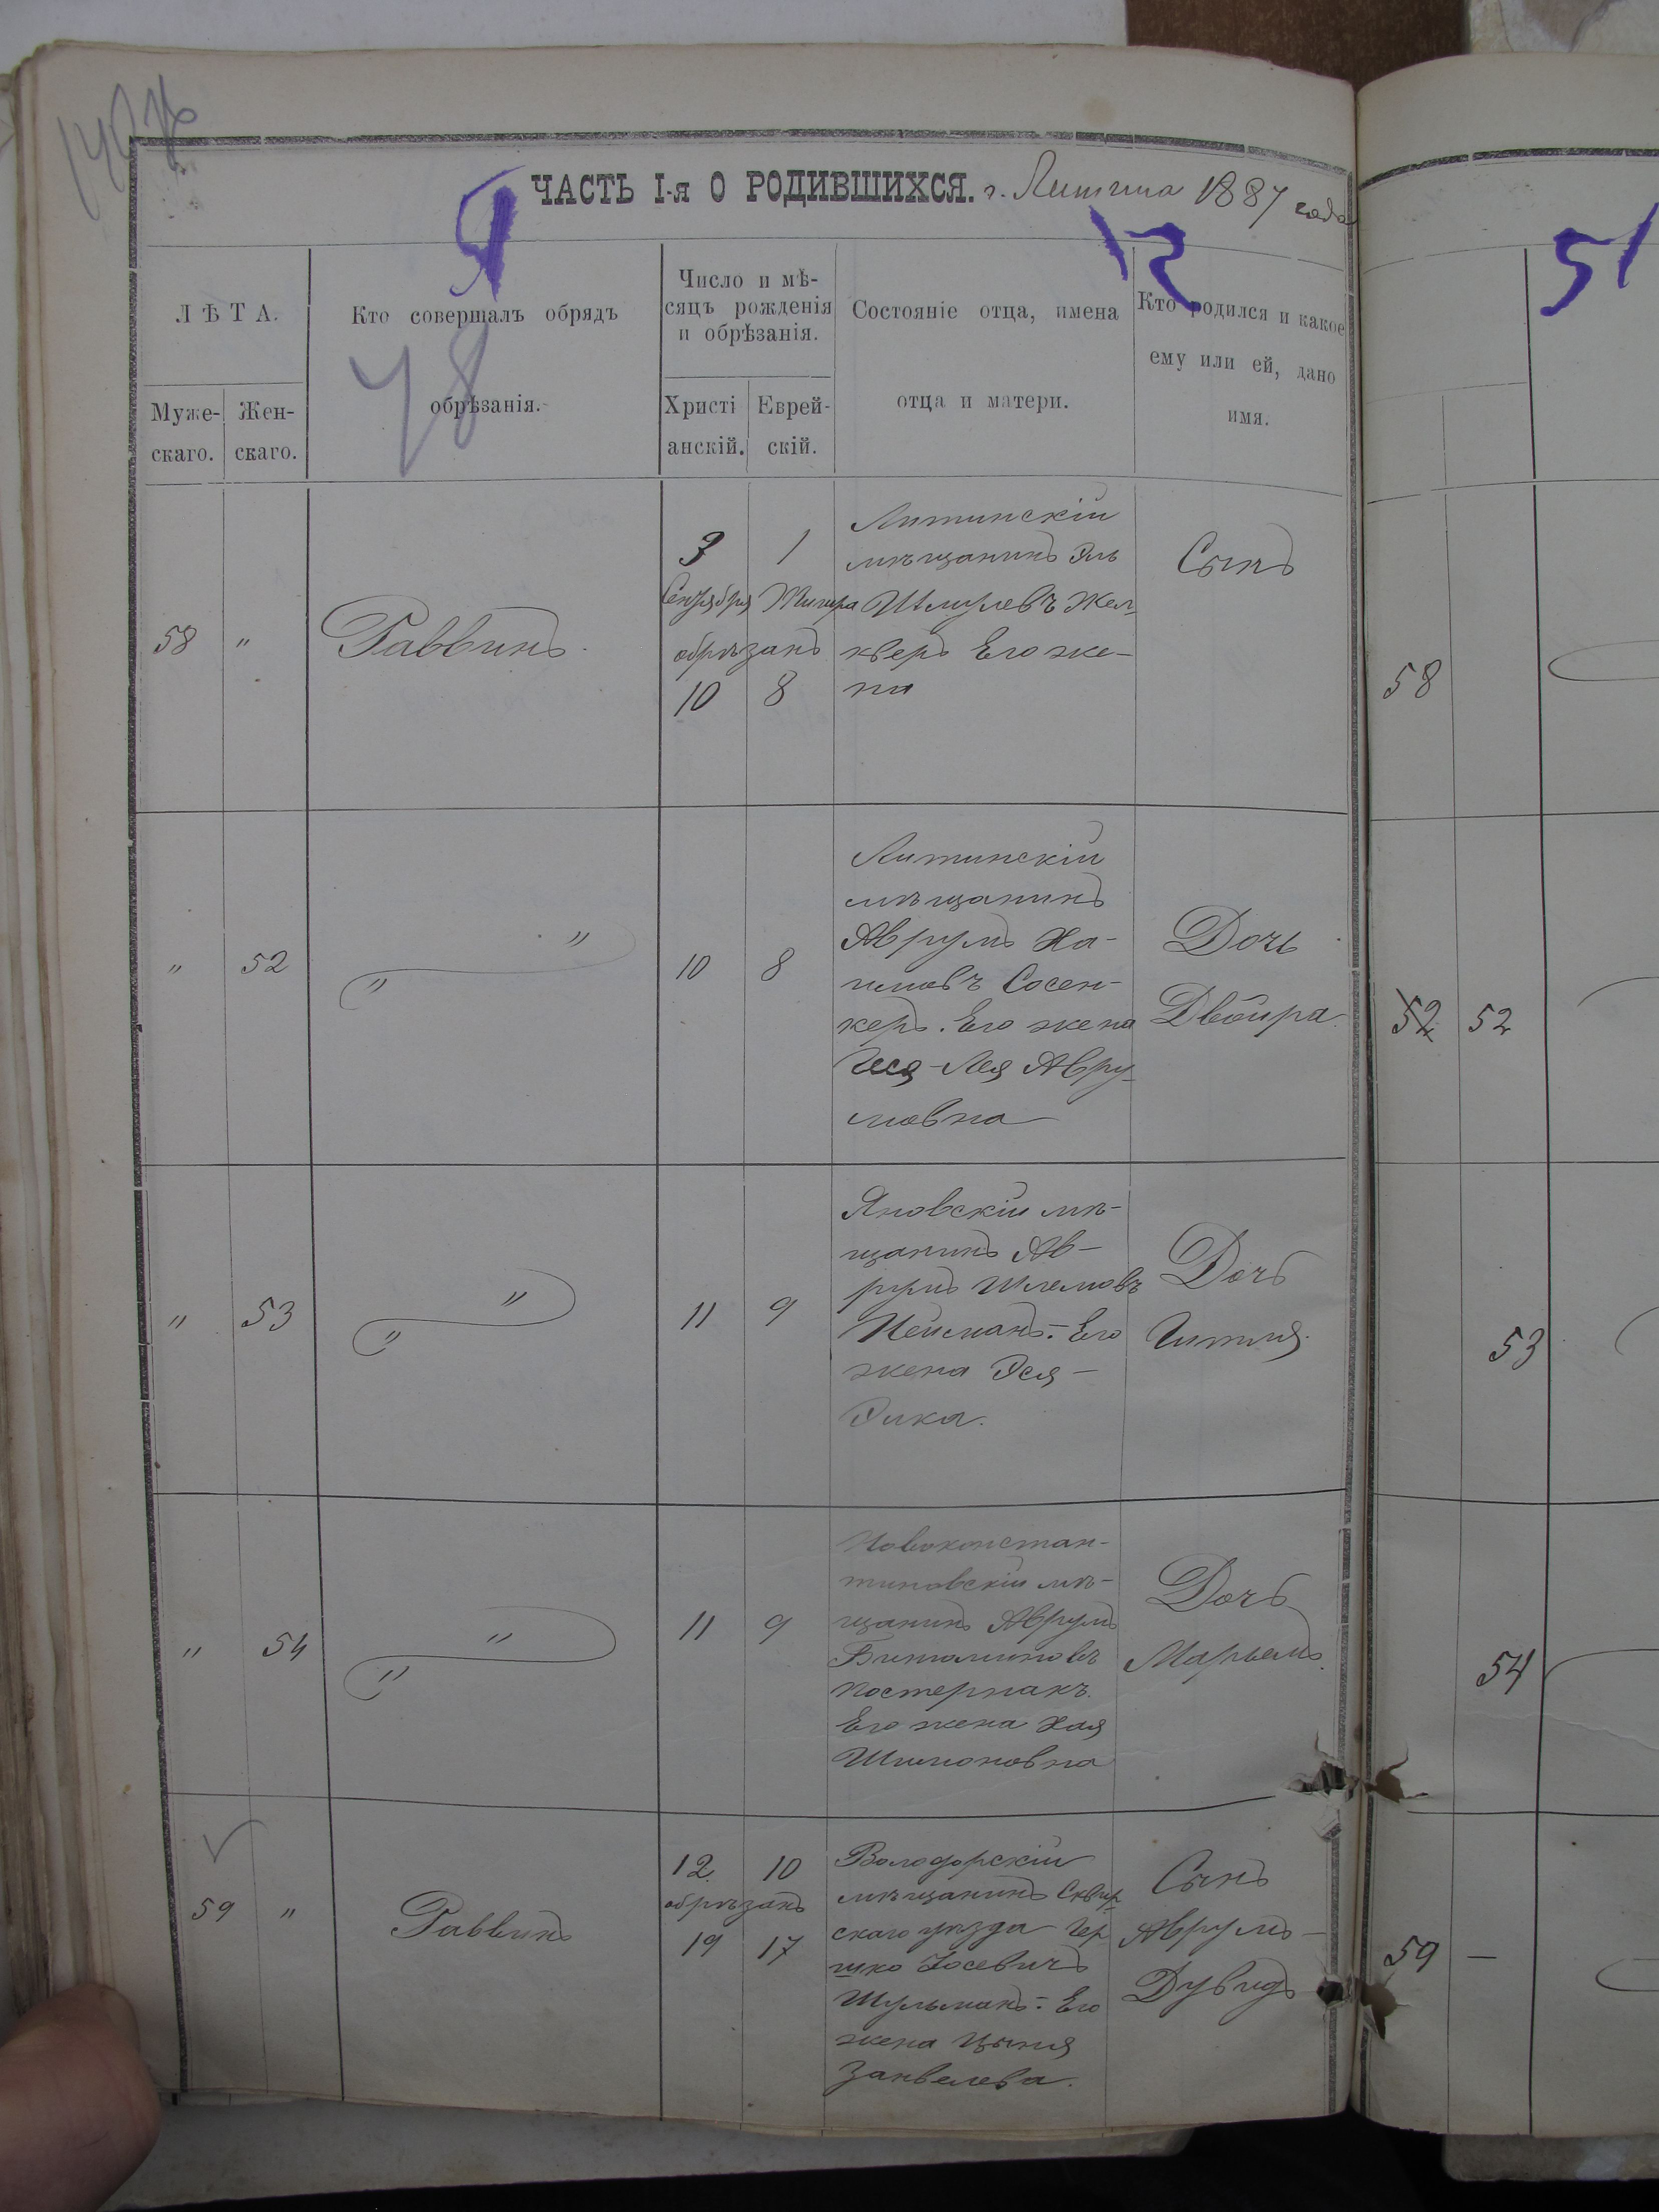 ЧАСТЬ I-я О РОДИВШИХСЯ. г. Литина 1887 года
12
51
ЛѢТА.
Кто совершалъ обрядъ
обрѣзанія.
48
Число и мѣ-
сяцъ рожденія
и обрѣзанія.
Состояніе отца, имена
отца и матери.
Кто родился и какое
ему или ей, дано
имя.
Муже-
скаго.
Жен-
скаго.
Христі
анскій.
Еврей-
скій.
58 "
Раввинъ
3 1
Сентября
обрѣзанъ
10 8
Литинскій
мѣщанинъ
Его же-
на
Сынъ
58
" 52
" "
10 8
Литинскій
мѣщанинъ
Аврумъ Ха-
имовъ Сосен-
керъ. Его жена
Лея Авру-
мовна
Дочь
Двойра
52 52
" 53
" "
11 9
Яновскій мѣ-
щанинъ Ав-
румъ Шлемовъ
Нейманъ. Его
жена Эся-
Дочь
Гитля.
53
" 54
" "
11 9
Новоконстан-
тиновскій мѣ-
щанинъ Аврумъ
Биньоминовъ
Постернакъ.
Его жена Хая
Шимоновна
Дочь
Марьемъ.
54
59 "
Раввинъ
12 10
обрѣзанъ
19 17
Володорскій
мѣщанинъ Сквир-
скаго уѣзда Гер-
шко Іосевичъ
Шульманъ. Его
жена Цыпя
Занвелева.
Сынъ
Аврумъ-
Дувидъ
59 —